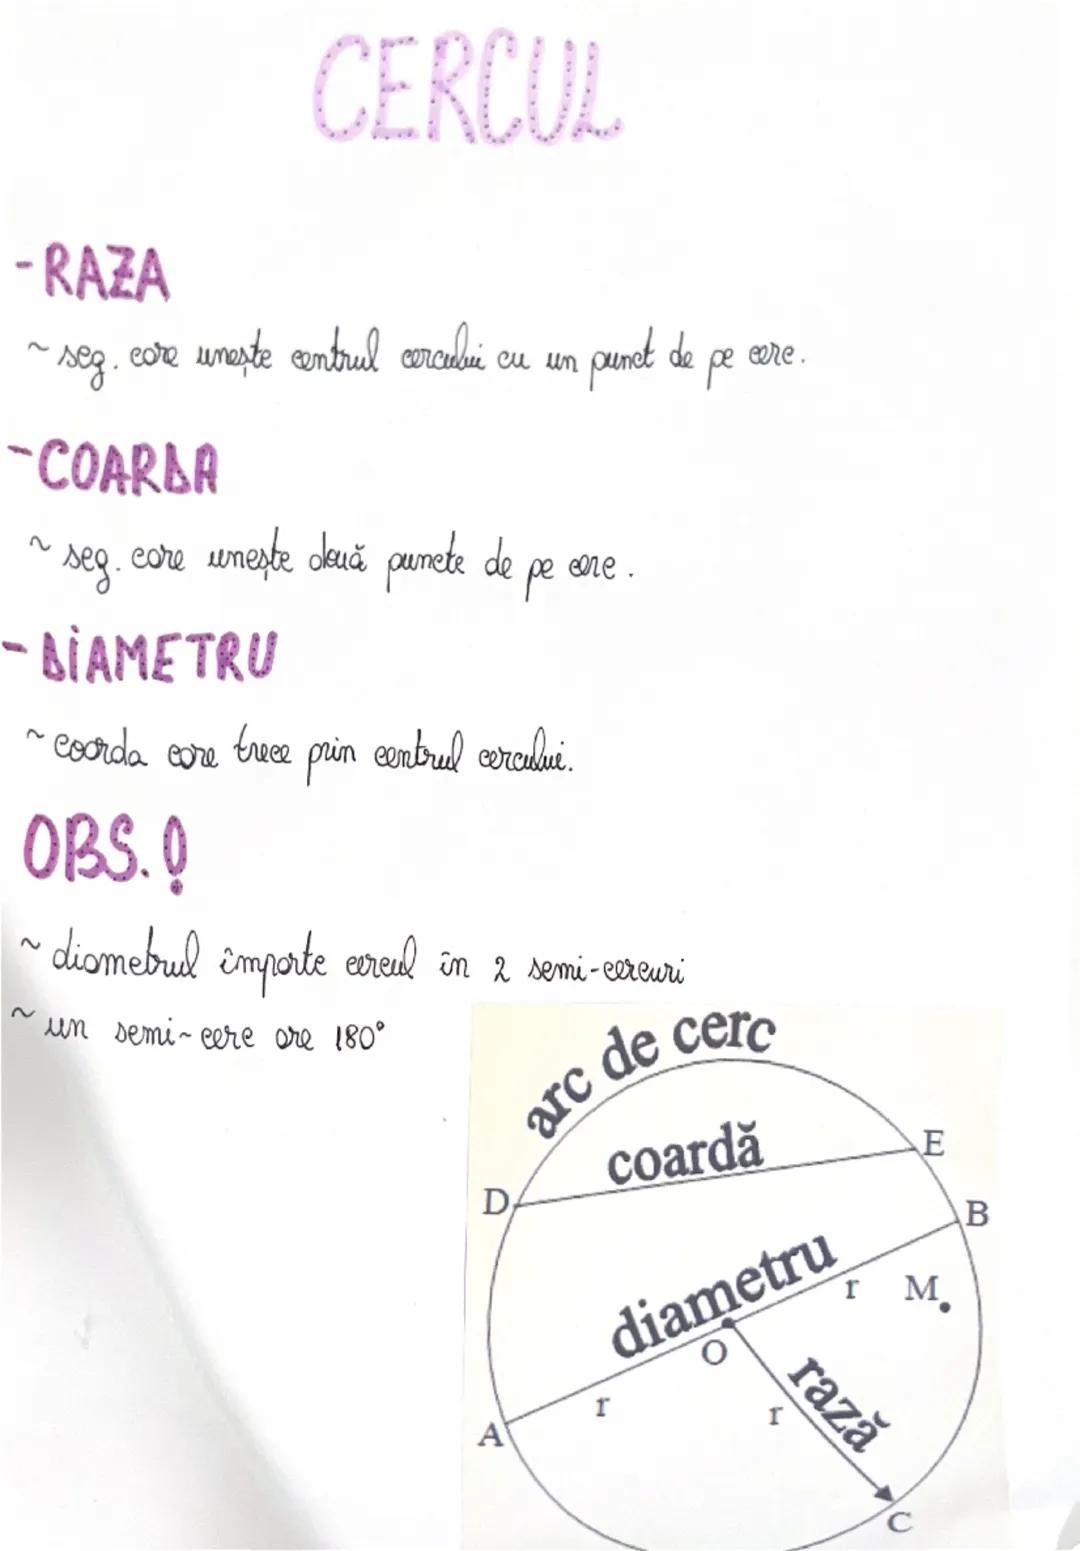 CERCUL
- RAZA
~ seg. care unește centrul cercului cu un punct de pe cerc.
- COARDA
~ seg. care unește două puncte de pe cerc.
- DIAMETRU
~ coarda care trece prin centrul cercului.
OBS. !
~ diametrul împarte cercul în 2 semi-cercuri
~ un semi-cerc are 180°
arc de cerc
coardă
E
D
B
diametru
r
M
O
rază
r
r
A
C